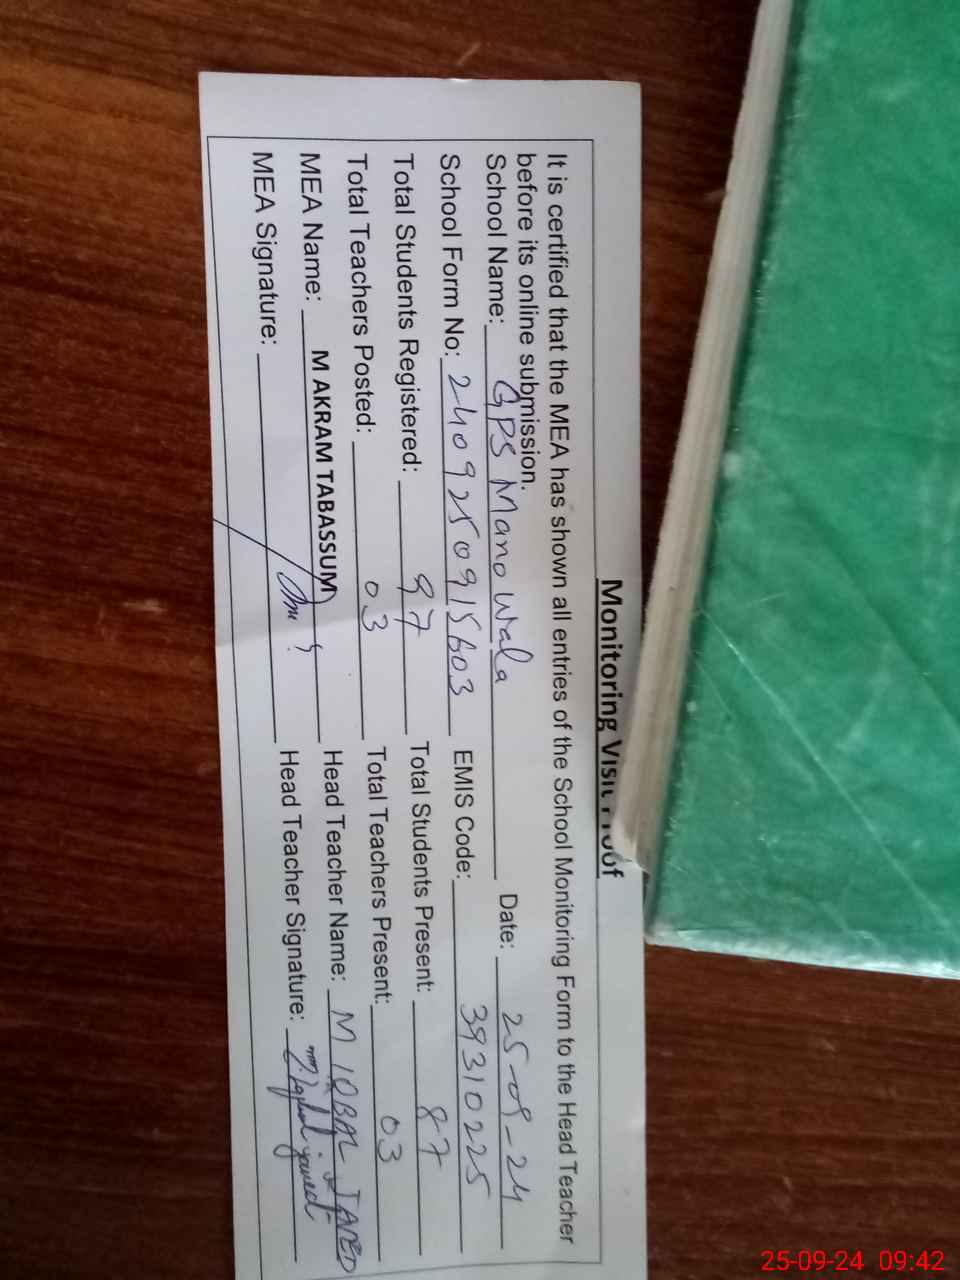 Monitoring Visit Proof
It is certified that the MEA has shown all entries of the School Monitoring Form to the Head Teacher
before its online submission.
School Name: GPS Manowala Date: 25-09-24
School Form No: 2409250915603 EMIS Code: 39310225
Total Students Registered: 97 Total Students Present: 87
Total Teachers Posted: 03 Total Teachers Present: 03
MEA Name: M AKRAM TABASSUM Head Teacher Name: M IQBAL JAVED
MEA Signature: Head Teacher Signature:
25-09-24 09:42